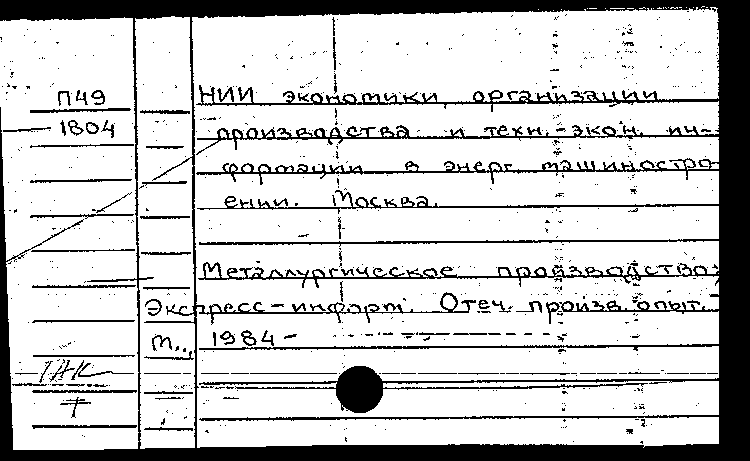 П49
1804
НИИ экономики, организации
производства и техн.-экон. ин-
формации в энерг. машиностро-
ении. Москва.
Металлургическое производство:
Экспресс-информ. Отеч. произв. опыт. -
М.., 1984 -